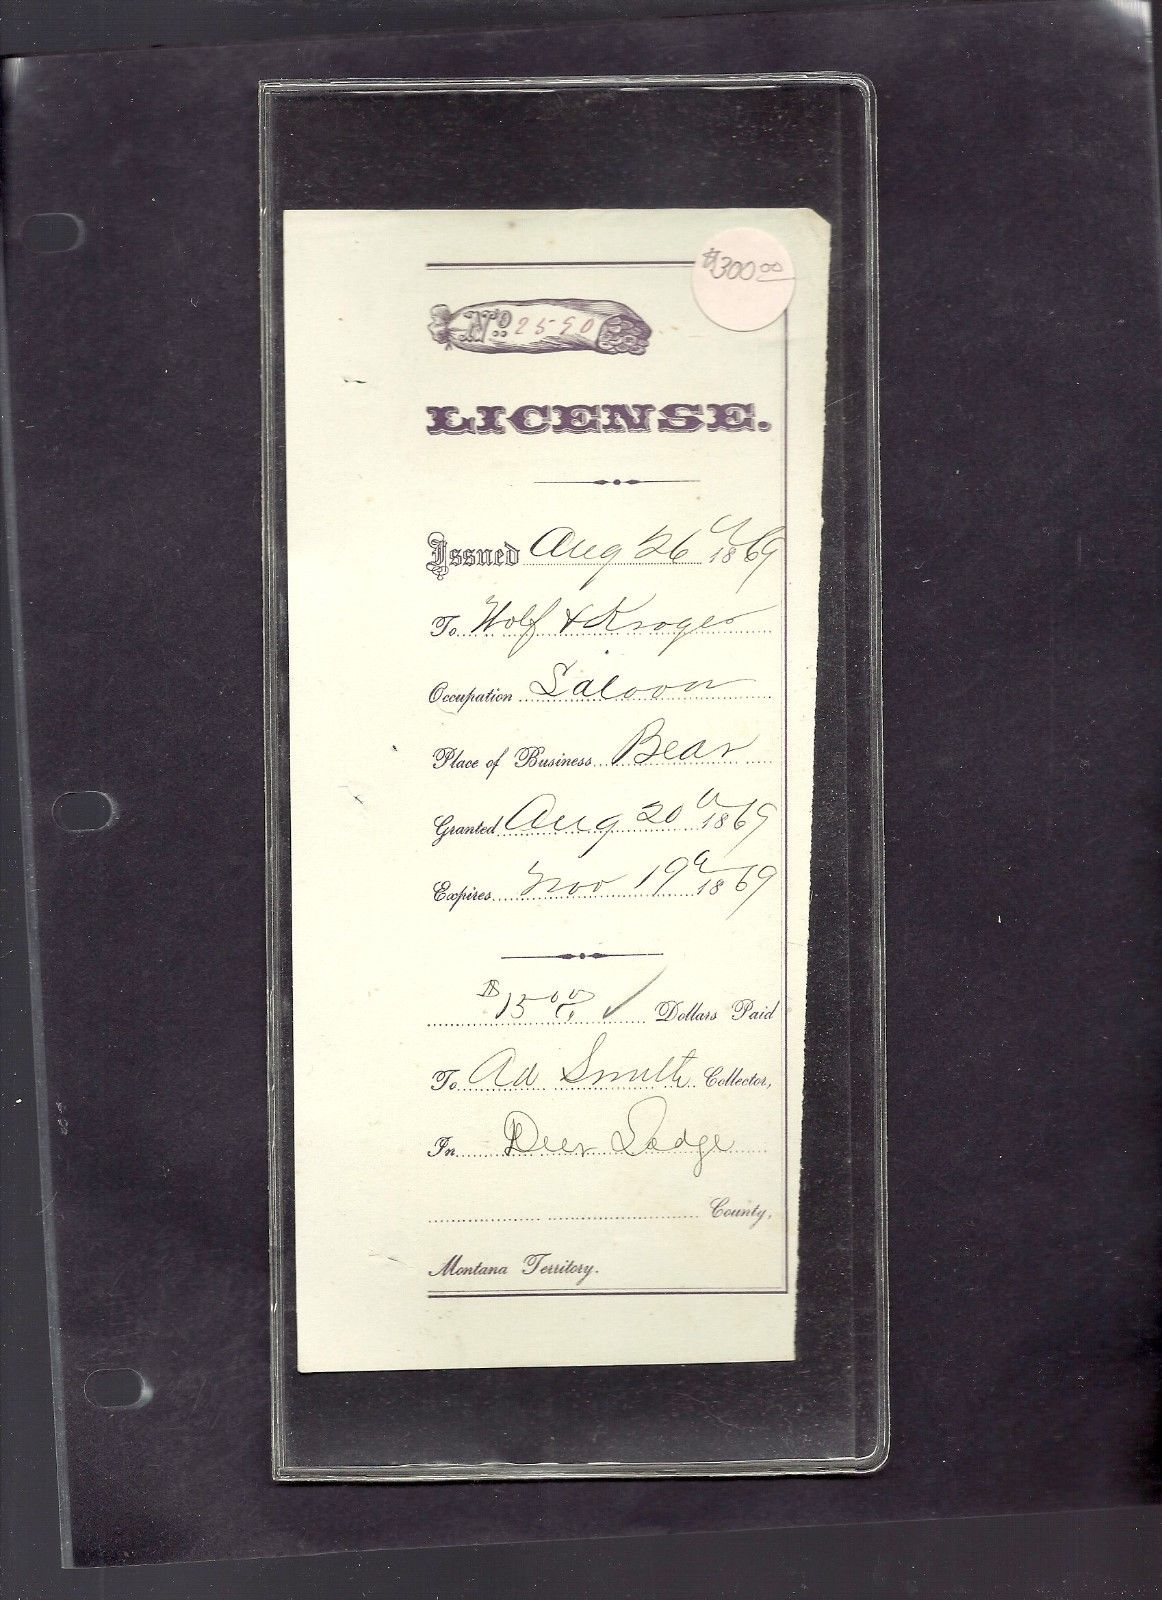 $300.00
No. 2590
LICENSE.
Issued Aug 26th 1869
To Wolf & Kroger
Occupation Saloon
Place of Business Bear
Granted Aug 20th 1869
Expires Nov 19th 1869
$15.00 Dollars Paid
To Ad Smith Collector,
In Deer Lodge
County,
Montana Territory.